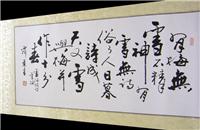 有梅無
雪不精
神有
雪無詩
俗了人日暮
詩成
天又雪
與梅并
作十分
春